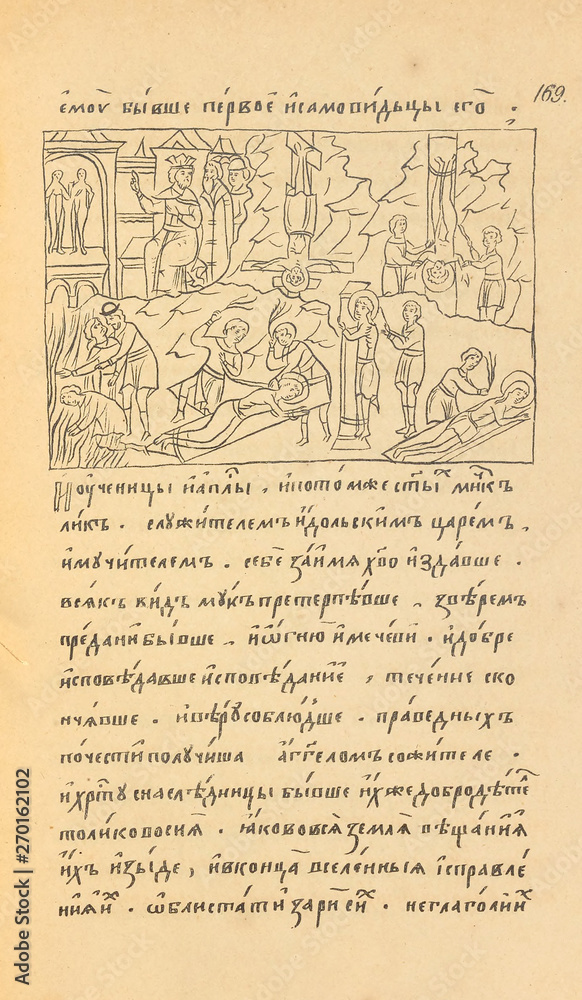 169.
емоу бывше первое исамовидьцы его .
Ноученицы иап҃лы , ипотомже ст҃ыⷯ мн҃къ
ликъ . служителемъ идольскимъ царемъ ,
имучителемъ . себе заимя х҃во издавше .
всякъ видъ мукъ претерпѣвше , звѣремъ
предани бывше , иѡгню имечеви . идобре
исповѣдавше исповѣдание , течение ско
нчявше . ивѣру соблюдше . праведныхъ
почести получиша агг҃еломъ сожителе .
ихр҃ту снаслѣдницы бывше ихже добродѣте
толико восия . яко вовся земля вѣщания
ихъ изыде , ивконца вселенныя исправле
нияиⷯ . ѡблистати зари сеиⷯ . неглаголииⷯ
Adobe Stock | #270162102